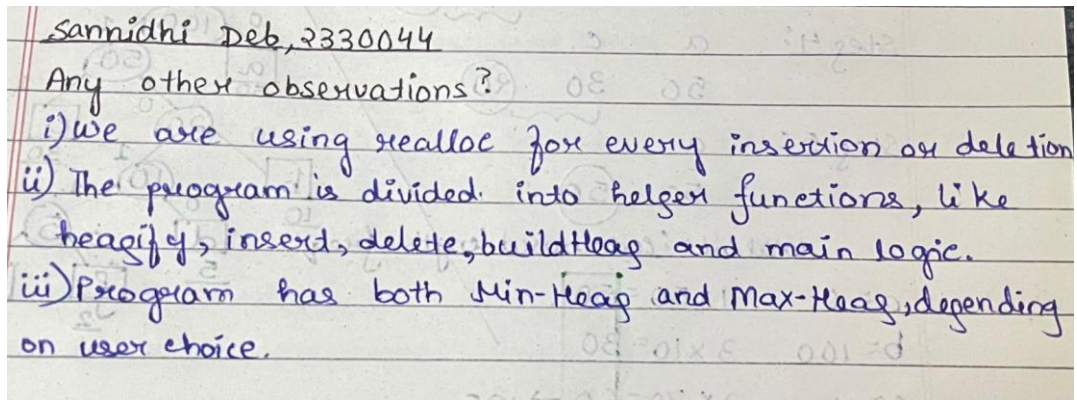 Sannidhi Deb, 2330044
Any other observations?
i) We are using realloc for every insertion or deletion
ii) The program is divided into helper functions, like
heapify, insert, delete, buildHeap and main logic.
iii) Program has both Min-Heap and Max-Heap, depending
on user choice.